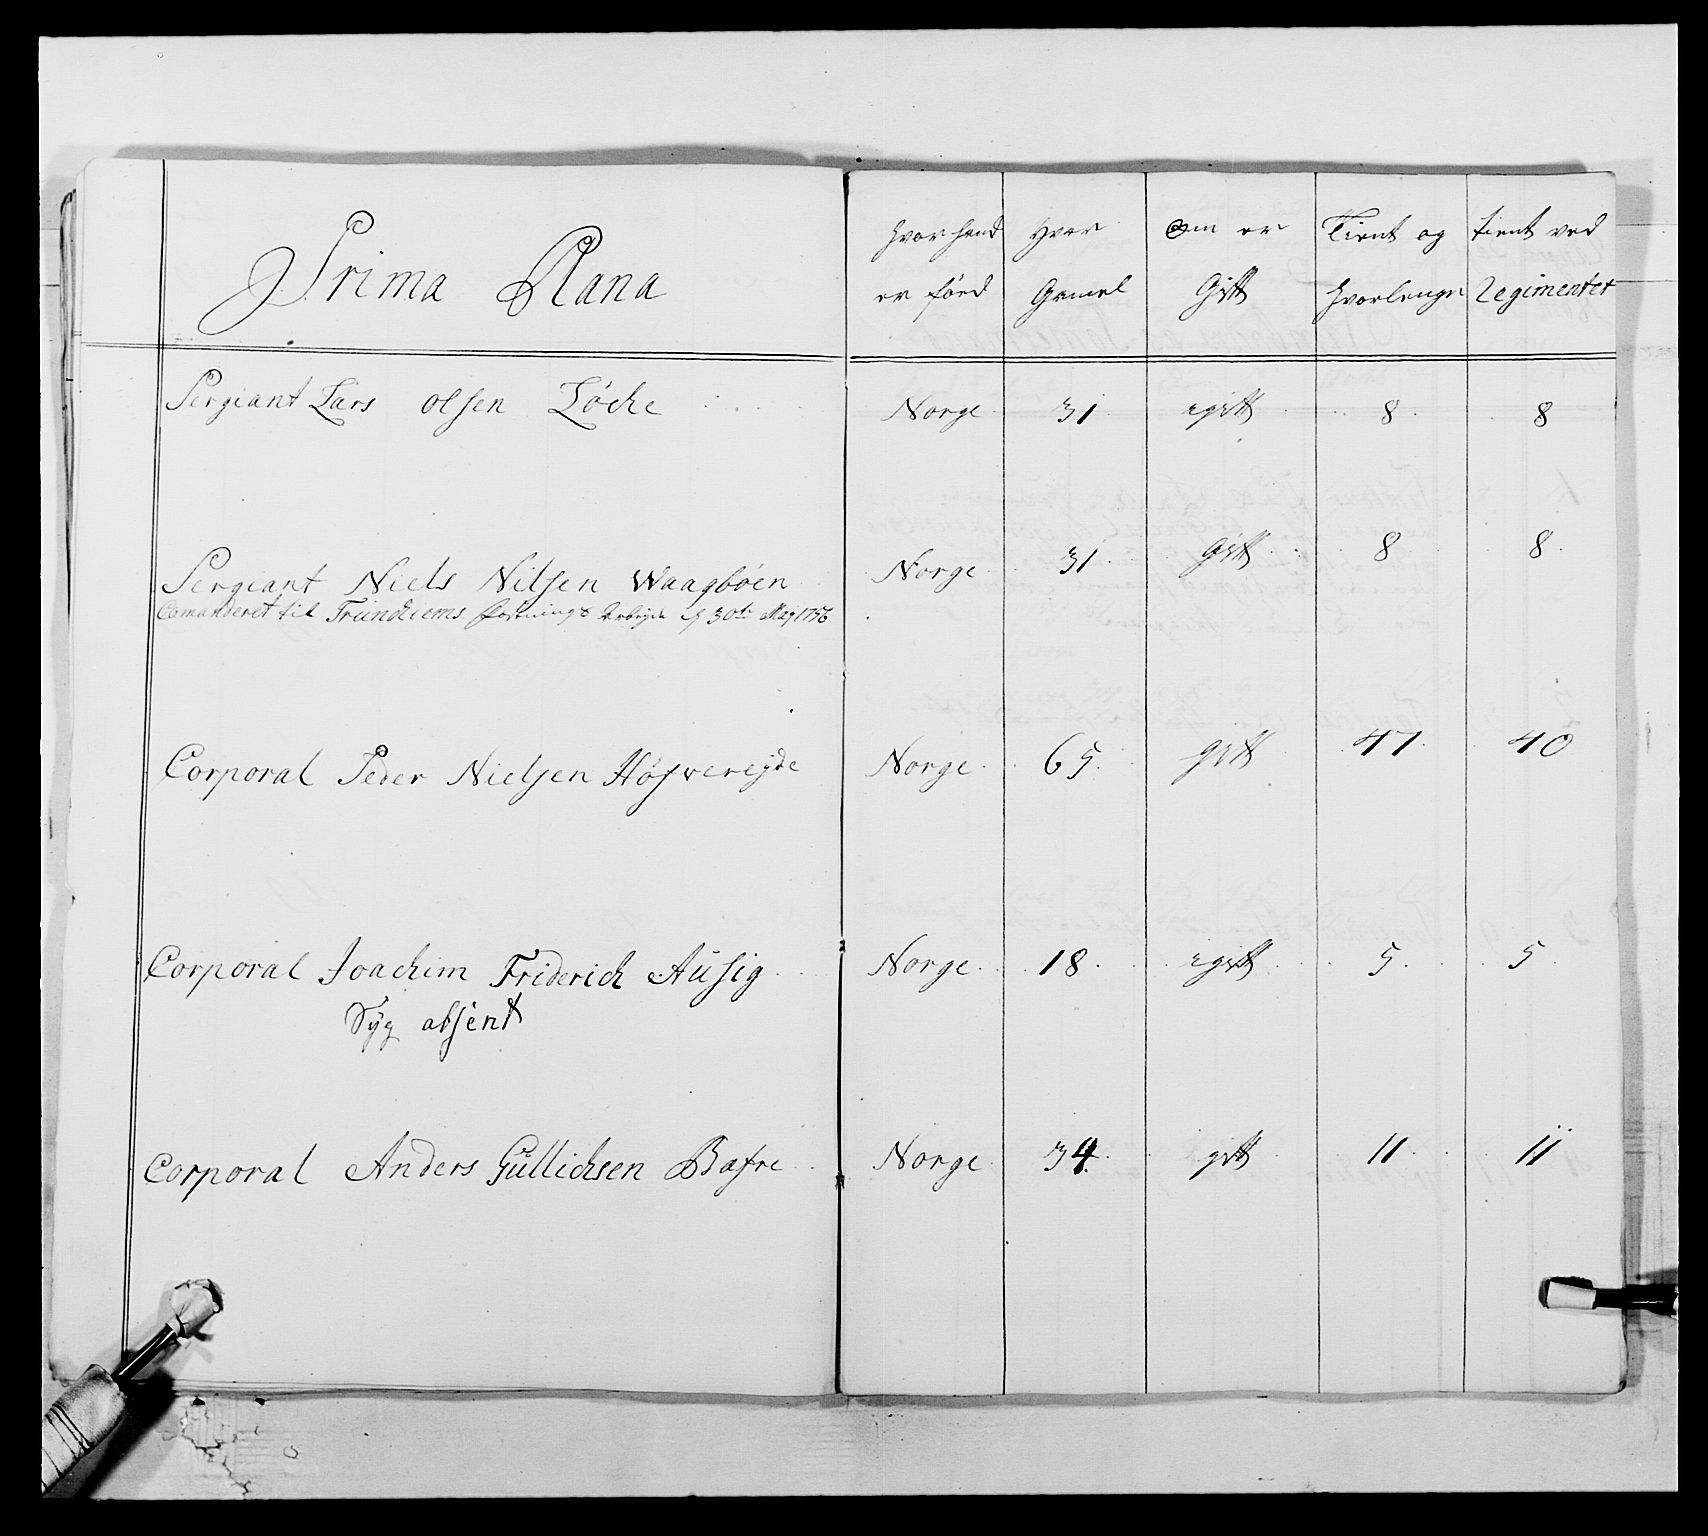 Prima Plana
hvor hand Hvor Om er Tient og tient ved
er föed Gamel Gift hvorlenge Regimentet
Sergiant Lars olsen Löche Norge 31 ugift 8 8
Sergiant Niels Nilsen Waagböen Norge 31 Gift 8 8
Comanderet til Trundiems Fæstnings Arbeyde d 30te Maj 1756
Corporal Peder Nielsen Norge 65 gift 47 40
Corporal Joachim Friderich Ausig Norge 18 ugift 5 5
Syg absent
Corporal Anders Gullichsen Bafre Norge 34 gift 11 11